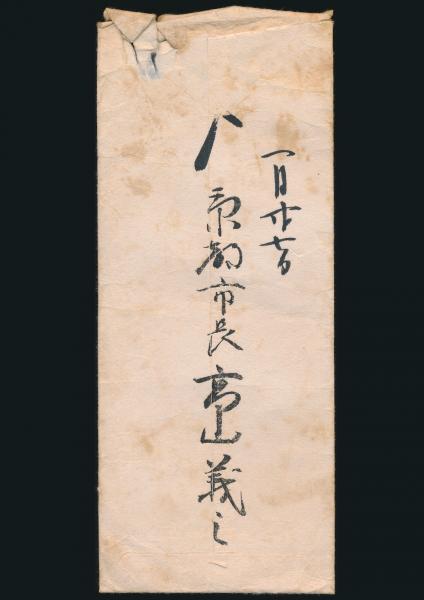 一月廿七日
京都市長高山義三